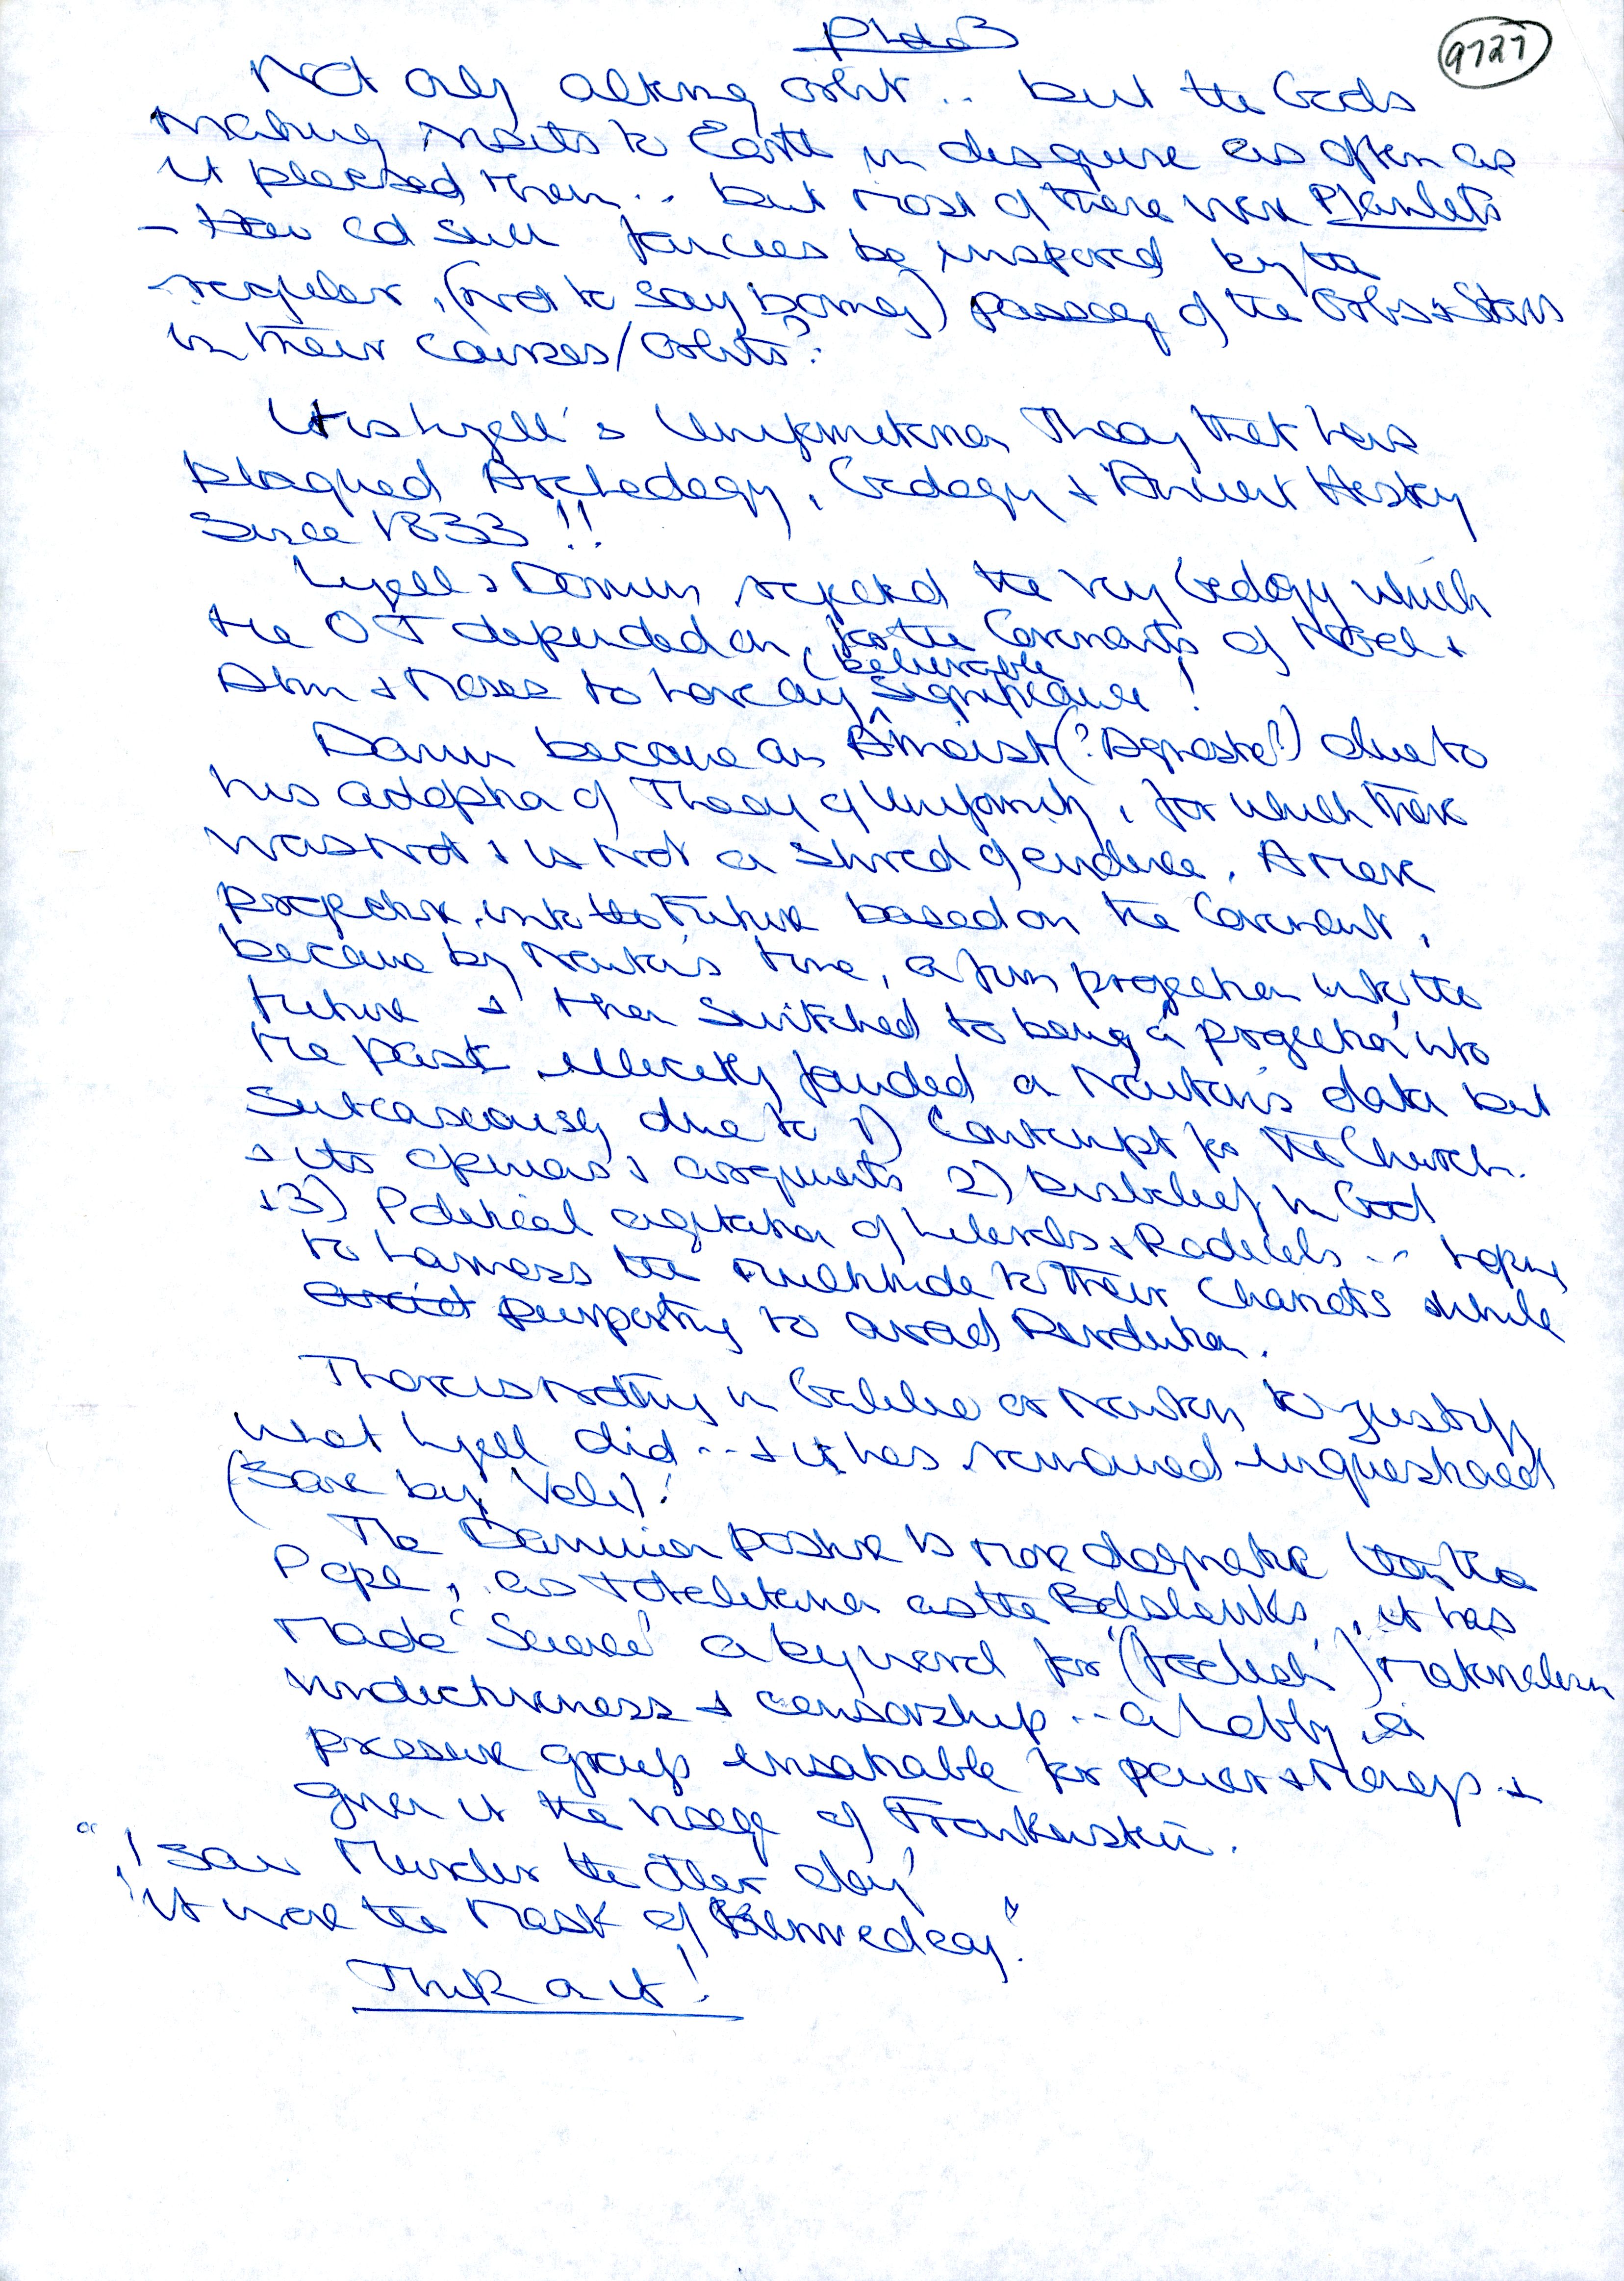 Plato 3
9727
Not only altering orbit .. but the Gods
making visits to Earth in disguise as often as
it pleased them .. but most of these were Planets
- How cd such fancies be inspired by the
regular, (not to say boring) passage of the Orbs & Stars
in their courses/orbits?
It is Lyell's Uniformitarian Theory that has
plagued Archeology, Geology & Ancient History
Since 1833 !!
Lyell & Darwin rejected the very Geology which
the OT depended on, for the Covenants of Noah &
Abm & Moses to have any (believable significance !
Darwin became an Atheist (? Agnostic?) due to
his adoption of Theory of Uniformity, for which there
was not & is not a shred of evidence. A mere
projection into the Future based on the Covenant,
became by Newton's time, a firm projection into the
future & then switched to being a 'projection' into
the past illicitly founded on Newton's data but
due to 1) Contempt for the Church
& its opinions & arguments 2) Disbelief in God
& 3) Political agitation of Liberals & Radicals .. hoping
to harness the multitude to their Chariots while
purporting to avoid Revolution.
There is nothing in Galileo or Newton to justify
what Lyell did .. & it has remained unquestioned
(save by Veli) !
The Darwinian posture is more dogmatic than the
Pope, as totalitarian as the Bolsheviks, it has
made 'Science' a byword for '(foolish') materialism
vindictiveness & censorship .. a Lobby, a
pressure group insatiable for power & money &
given it the visage of Frankenstein.
"I saw Murder the other day'
'it wore the Mask of Kennedy."
Think on it !